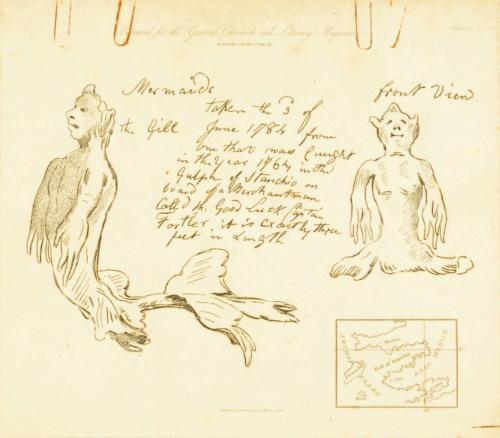 Engraved for the General Chronicle and Literary Magazine
Mermaids
front View
taken the 3 of
the Gill
June 1784 from
one that was Caught
in the Year 1764 in the
Gulph of Stanchio on
board of a Merchantman
Called the Good Luck Captain
Fortier. it is Exactly three
feet in Length
ARCHIPELAGO
Gulf of Stanchio
ASIA MINOR